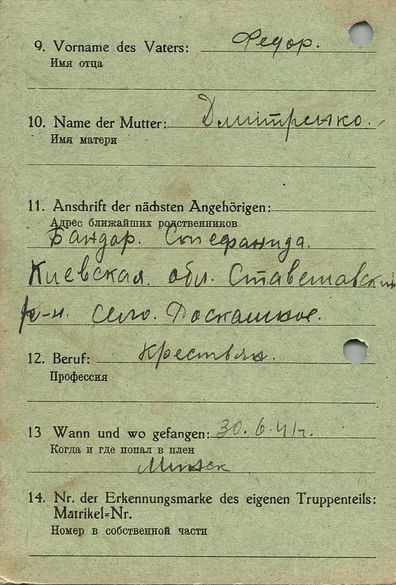 9. Vorname des Vaters: Федор.
Имя отца
10. Name der Mutter: Дмитренко.
Имя матери
11. Anschrift der nächsten Angehörigen:
Адрес ближайших родственников
Бандар. Стефанида.
Киевская. обл. Ставещавский
р-н. село. Роскошное.
12. Beruf: крестьян.
Профессия
13 Wann und wo gefangen: 30.6.41г.
Когда и где попал в плен
Минск
14. Nr. der Erkennungsmarke des eigenen Truppenteils:
Matrikel-Nr.
Номер в собственной части